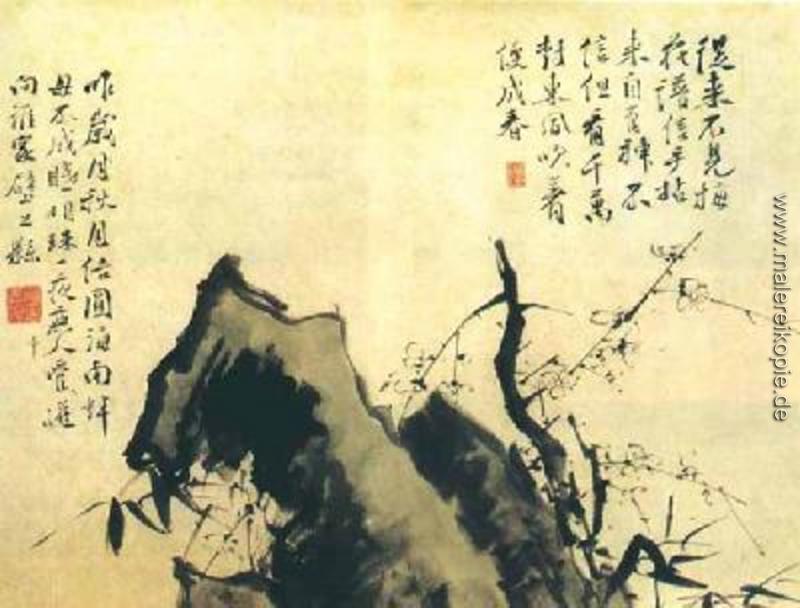 從來不見梅
花譜信手拈
來自有神不
信但看千萬
樹東風吹著
便成春
昨歲中秋月倍圓海南蚌
母不成眠明珠一夜無人管迸
向誰家壁上懸
www.malereikopie.de